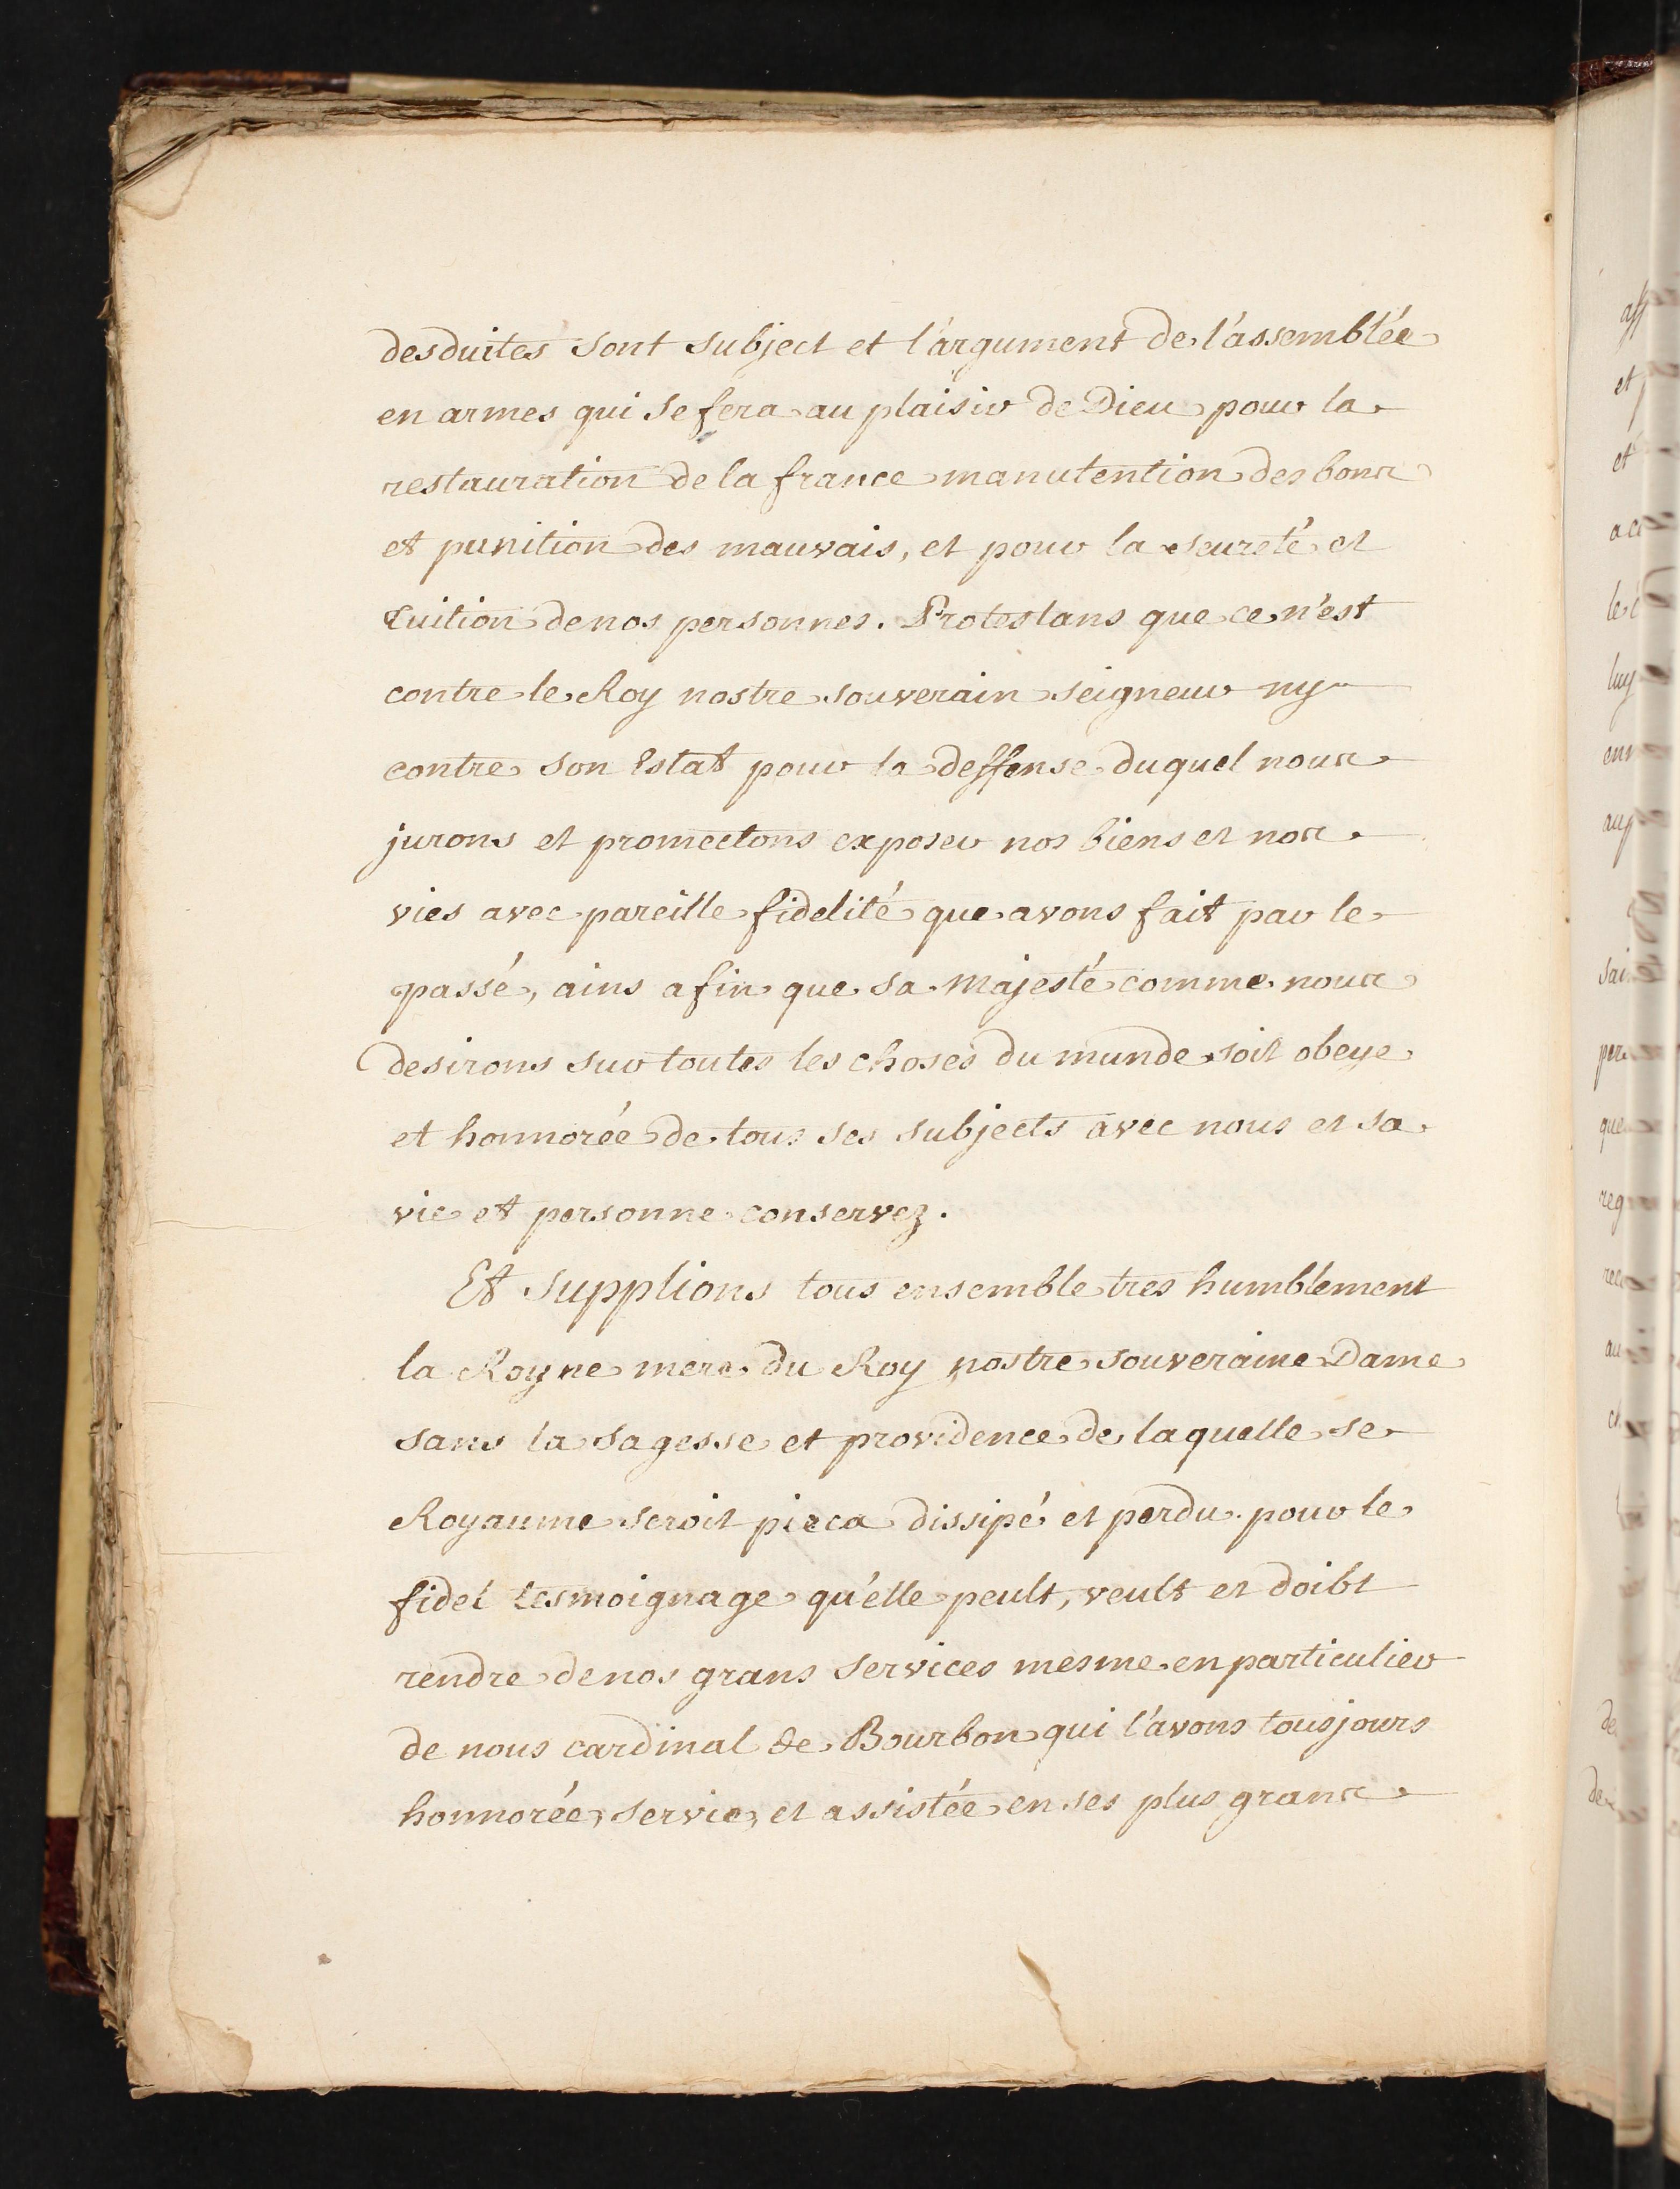 desduites sont subject et l'argument de l'assemblée
en armes qui se fera au plaisir de Dieu pour la
restauration de la france manutention des bons
et punition des mauvais, et pour la seureté et
tuition de nos personnes. Protestans que ce n'est
contre le Roy nostre souverain seigneur ny
contre son Estat pour la deffense duquel nous
jurons et promectons exposer nos biens et nos
vies avec pareille fidelité que avons fait par le
passé, ains afin que sa Majesté comme nous
desirons sur toutes les choses du munde soit obeye
et honnorée de tous ses subjects avec nous et sa
vie et personne conservez.
Et supplions tous ensemble tres humblement
la Royne mere du Roy nostre souveraine Dame
sans la sagesse et providence de laquelle se
Royaume seroit pieca dissipé et perdu. pour le
fidel tesmoignage qu'elle peult, veult et doibt
rendre de nos grans services mesme en particulier
de nous cardinal de Bourbon qui l'avons tousjours
honnorée, servie, et assistée en ses plus grans